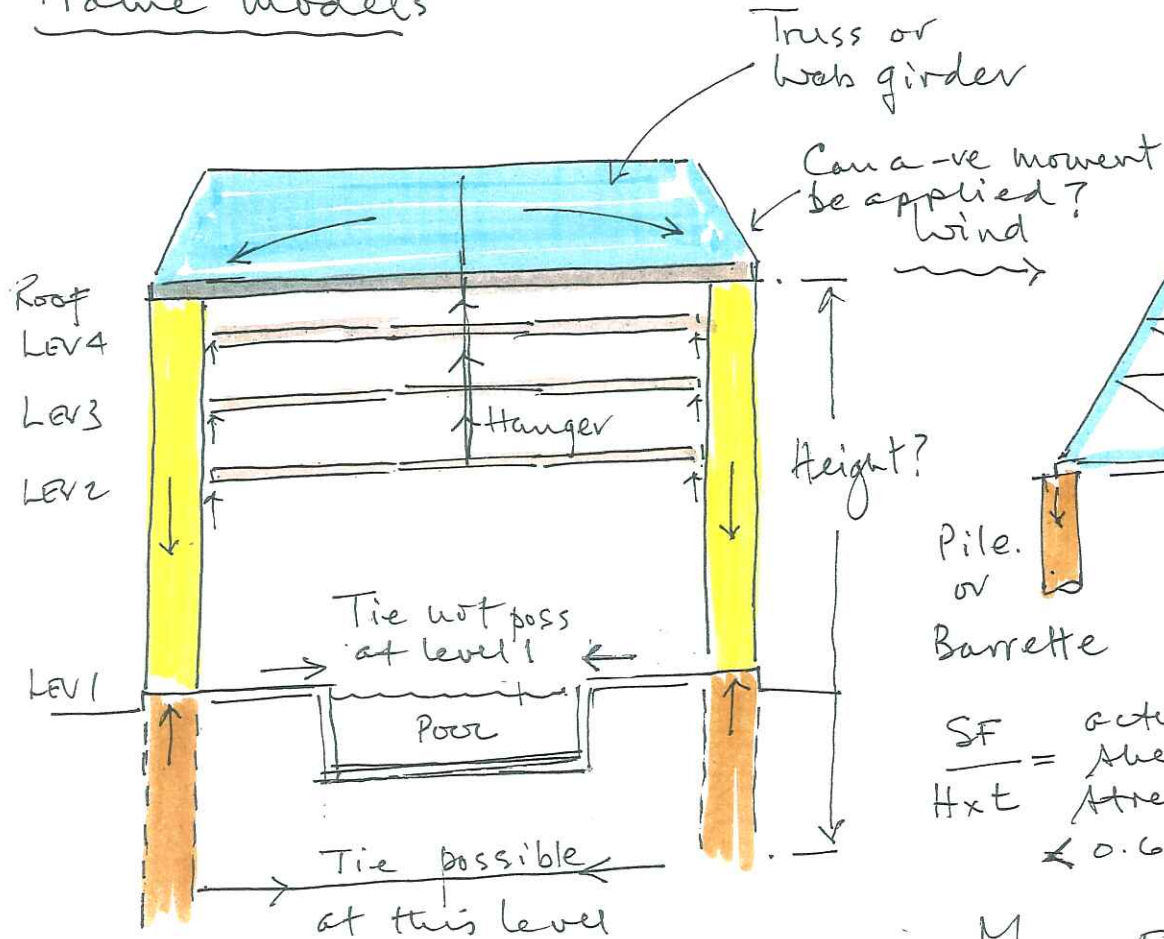 Frame models
Truss or
Web girder
Can a -ve moment
be applied?
Wind
Roof
LEV4
LEV3
LEV2
Hanger
Height?
Pile.
or
Barrette
Tie not poss
at level 1
LEV1
Pool
SF
H x t
=
Tie possible
at this level
M